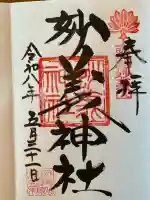 奉拝
妙義神社
令和八年
五月三十一日